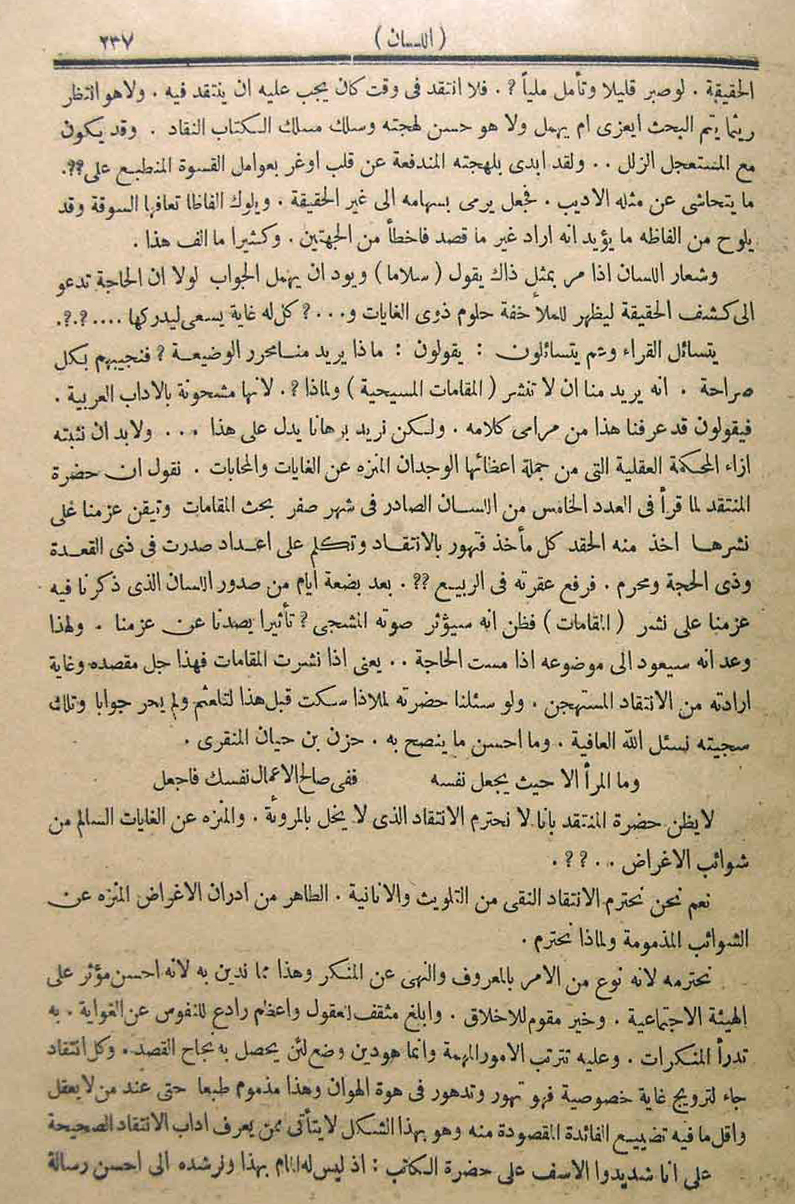 ( اللسان ) ٢٣٧
الحقيقة . لو صبر قليلا وتأمل ملياً ? . فلا انتقد فى وقت كان يجب عليه ان ينتقد فيه . ولا هو انتظار
ريثما يتم البحث ايعزى ام يهمل ولا هو حسن لهجته وسلك مسلك الكتاب النقاد . وقد يكون
مع المستعجل الزلل . . ولقد ابدى بلهجته المندفعة عن قلب اوغر بعوامل القسوة المنطبع على ??.
ما يتحاشى عن مثله الاديب . فجعل يرمى بسهامه الى غير الحقيقة . ويلوك الفاظا تعافها السوقة وقد
يلوح من الفاظه ما يؤيد انه اراد غير ما قصد فاخطأ من الجهتين . وكثيرا ما الف هذا .
وشعار اللسان اذا مر بمثل ذاك يقول ( سلاما ) ويود ان يهمل الجواب لولا ان الحاجة تدعو
الى كشف الحقيقة ليظهر للملأ خفة حلوم ذوى الغايات و . . . ? كل له غاية يسعى ليدركها . . . . ?.?.
يتسائل القراء وعم يتسائلون : يقولون : ماذا يريد منا محرر الوضيعة ? فنجيبهم بكل
صراحة . انه يريد منا ان لا تنشر ( المقامات المسيحية ) ولماذا ? . لانها مشحونة بالاداب العربية .
فيقولون قد عرفنا هذا من مرامى كلامه . ولكن نريد برهانا يدل على هذا . . . ولابد ان نثبته
ازاء المحكمة العقلية التى من جملة اعضائها الوجدان المنزه عن الغايات والمحابات . نقول ان حضرة
المنتقد لما قرأ فى العدد الخامس من اللسان الصادر فى شهر صفر بحث المقامات وتيقن عزمنا على
نشرها اخذ منه الحقد كل مأخذ فتهور بالانتقاد وتكلم على اعداد صدرت فى ذى القعدة
وذى الحجة ومحرم . فرفع عقرته فى الربيع ?? . بعد بضعة ايام من صدور اللسان الذى ذكرنا فيه
عزمنا على نشر ( المقامات ) فظن انه سيؤثر صوته المشجى ? تأثيرا يصدنا عن عزمنا . ولهذا
وعد انه سيعود الى موضوعه اذا مست الحاجة . . يعنى اذا نشرت المقامات فهذا جل مقصده وغاية
ارادته من الانتقاد المستهجن . ولو سئلنا حضرته لماذا سكت قبل هذا لتلعثم ولم يحر جوابا وتلك
سجيته نسئل الله العافية . وما احسن ما ينصح به . حزن بن حيان المنقرى .
وما المرأ الا حيث يجعل نفسه ففى صالح الاعمال نفسك فاجعل
لايظن حضرة المنتقد بانا لا نحترم الانتقاد الذى لا يخل بالمروئة . والمنزه عن الغايات السالم من
شوائب الاغراض . . ? ? .
نعم نحن نحترم الانتقاد النقى من التلويث والانانية . الطاهر من ادران الاغراض المنزه عن
الشوائب المذمومة ولماذا نحترم .
نحترمه لانه نوع من الامر بالمعروف والنهى عن المنكر وهذا مما ندين به لانه احسن مؤثر على
الهيئة الاجتماعية . وخير مقوم للاخلاق . وابلغ مثقف للعقول واعظم رادع للنفوس عن الغواية . به
تدرأ المنكرات . وعليه تترتب الامور المهمة وانما هو دين وضع لئن يحصل به نجاح القصد . وكل انتقاد
جاء لترويج غاية خصوصية فهو تهور وتدهور فى هوة الهوان وهذا مذموم طبعا حتى عند من لا يعقل
واقل ما فيه تضييع الفائدة المقصودة منه وهو بهذا الشكل لايتأتى ممن يعرف اداب الانتقاد الصحيحة
على انا شديدوا الاسف على حضرة الكاتب : اذ ليس له المام بهذا ونرشده الى احسن رسالة